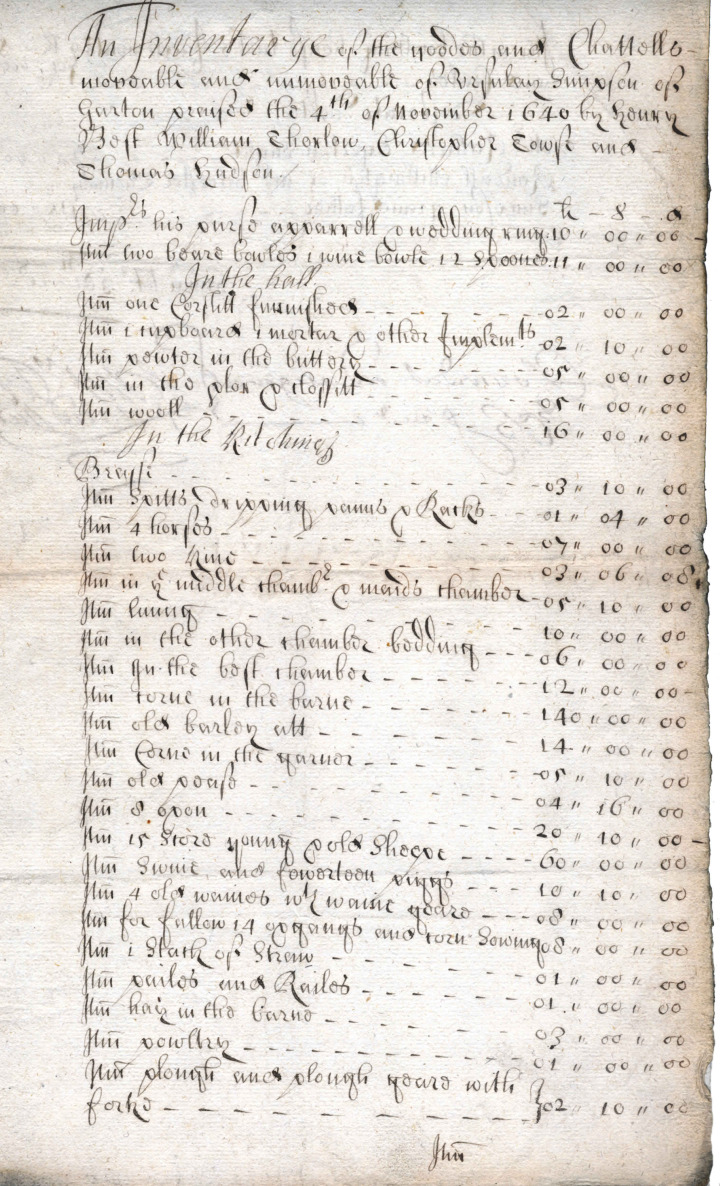 An Inventarye of the goodes and Chattells
moveable and unmoveable of Ursulay Simpson of
Garton praised the 4th of November 1640 by Henry
Best William Thorlow, Christopher Towse and
Thomas Hudson
li - s - d
Imprs his purse apparrell & wedding ring 10 " 00 " 00
Itm two beare bowles 1 wine bowle 12 spoones 11 " 00 " 00
In the hall
Itm one Corslitt furnished 02 " 00 " 00
Itm 1 cupboard 1 mortar & other Implemts 02 " 10 " 00
Itm pewter in the buttery 05 " 00 " 00
Itm in the plor & clossitt 05 " 00 " 00
Itm wooll 16 " 00 " 00
In the Kitching
Brasse 03 " 10 " 00
Itm Spitts dripping panns & Racks 01 " 04 " 00
Itm 4 horses 07 " 00 " 00
Itm two kine 03 " 06 " 08
Itm in ye middle chambr & maids chamber 05 " 10 " 00
Itm 10 " 00 " 00
Itm in the other chamber bedding 06 " 00 " 00
Itm In the best chamber 12 " 00 " 00
Itm corne in the barne 140 " 00 " 00
Itm old barley att 14 " 00 " 00
Itm Corne in the garner 05 " 10 " 00
Itm old pease 04 " 16 " 00
Itm 8 oxen 20 " 10 " 00
Itm 15 Store young & old Sheepe 60 " 00 " 00
Itm Swine and fowerteen piggs 10 " 10 " 00
Itm 4 old waines wth waine geare 08 " 00 " 00
Itm for fallow 14 oxgangs and corn sowing 08 " 00 " 00
Itm 1 Stack of Straw 01 " 00 " 00
Itm pailes and Railes 01 " 00 " 00
Itm hay in the barne 03 " 00 " 00
Itm powltry 01 " 00 " 00
Itm plough and plough geare with
forke 02 " 10 " 00
Itm